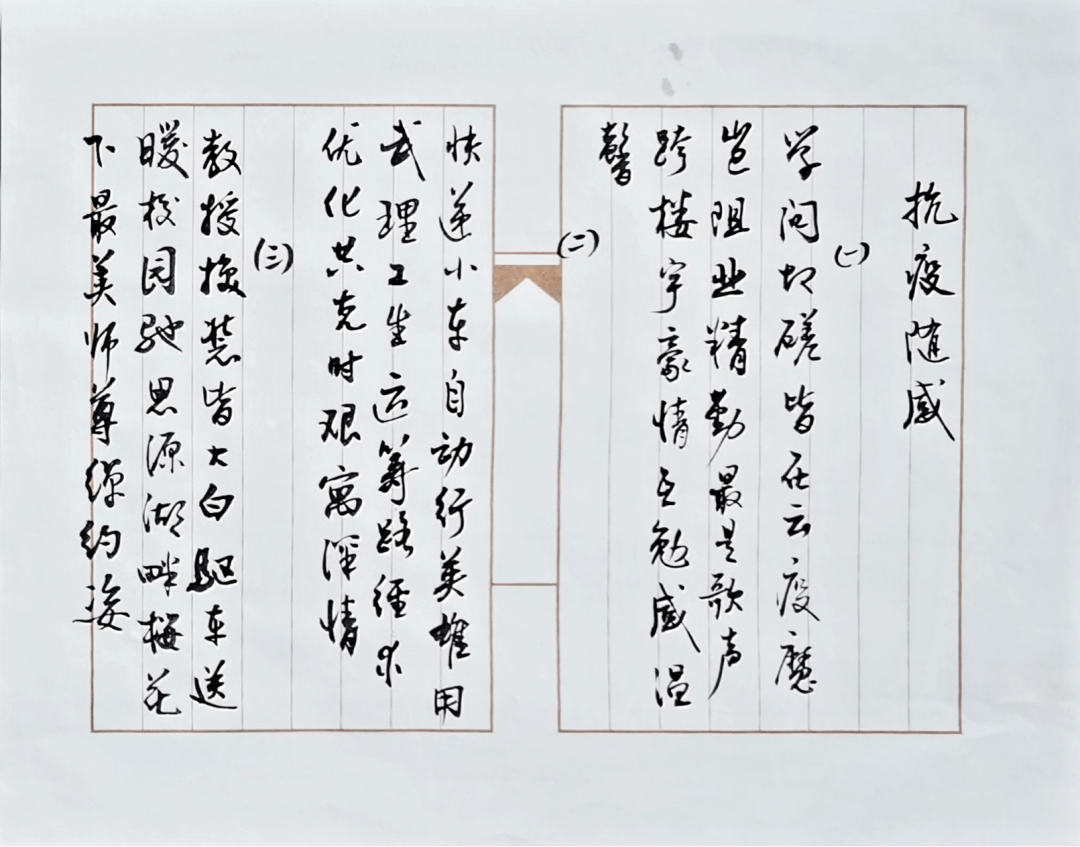 抗疫随感
(一)
学问切磋皆在云疫魔
岂阻业精勤最是歌声
跨楼宇豪情互勉感温
馨
(二)
快递小车自动行英雄用
武理工生运筹路径求
优化共克时艰寓深情
(三)
教授换装皆大白驱车送
暖校园驰思源湖畔梅花
下最美师尊绰约姿